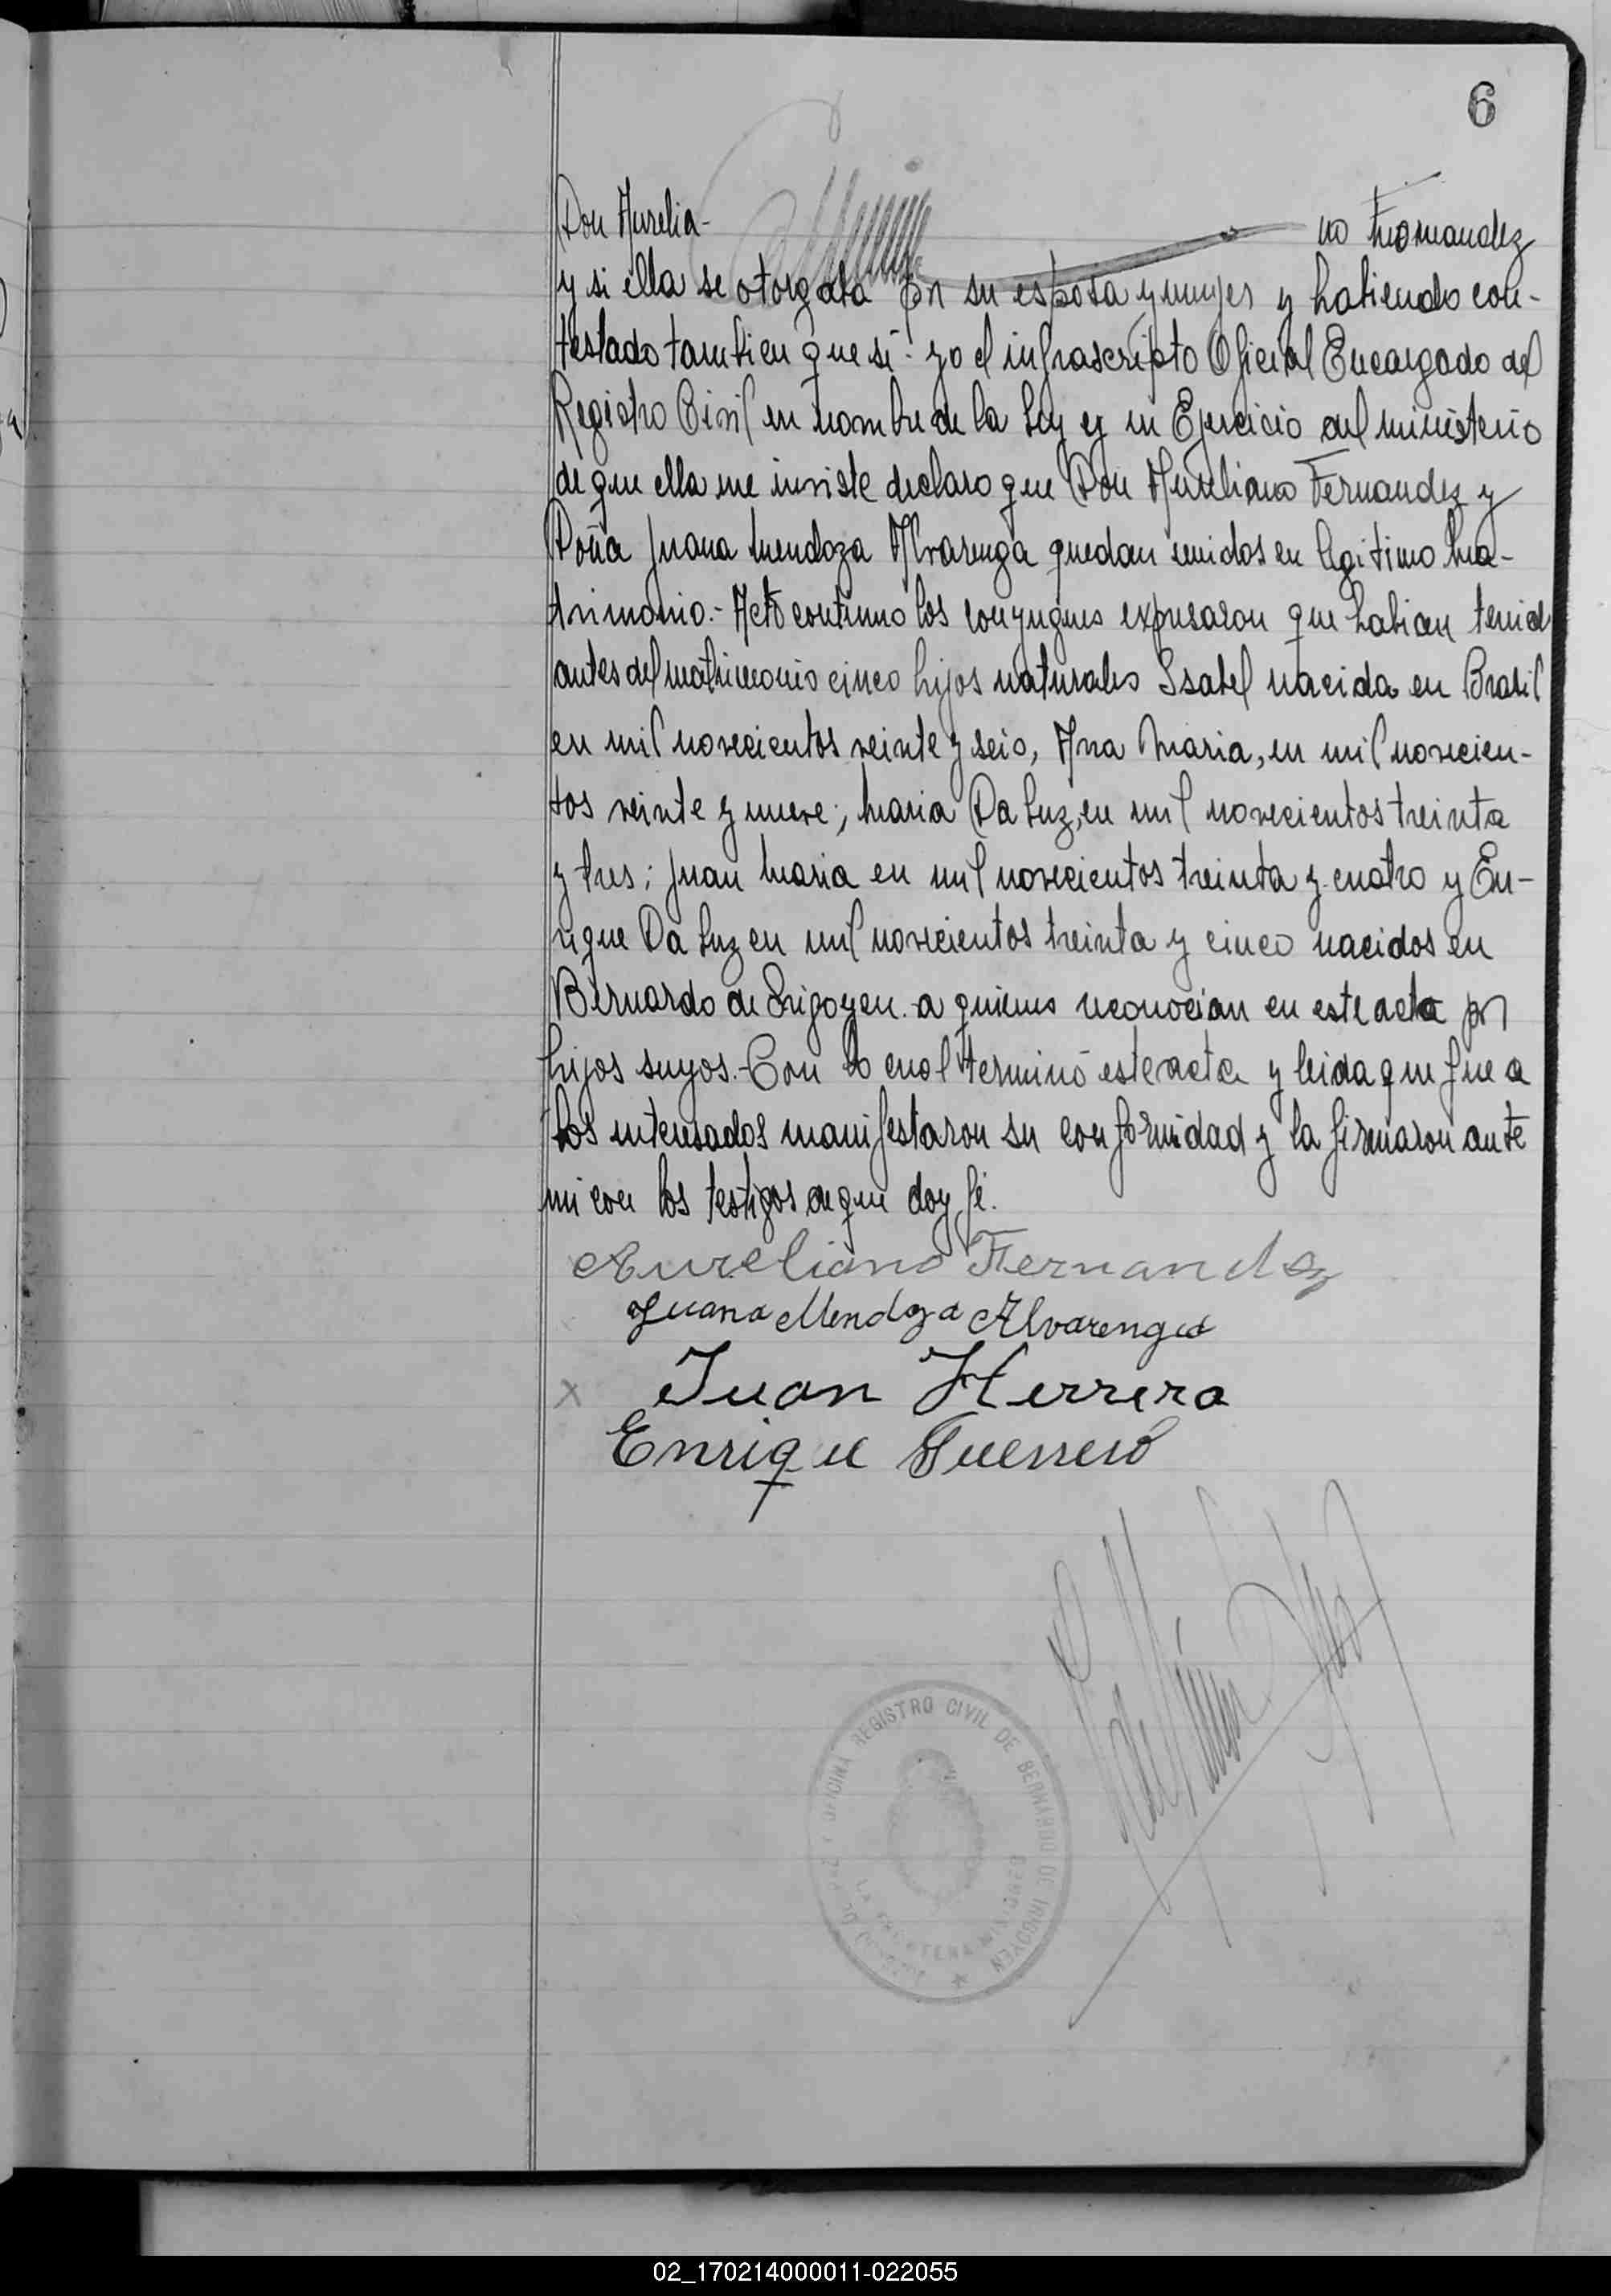 6
Don Aurelia- no Fernandez
y si ella se otorgaba por su esposa y mujer y habiendo con-
testado tambien que si- yo el infrascripto Oficial Encargado del
Registro Civil en nombre de la Ley y en Ejercicio del ministerio
de que ella me inviste declaro que Don Aureliano Fernandez y
Doña Juana Mendoza Alvarenga quedan unidos en legitimo ma-
trimonio.- Acto continuo los conyugues expresaron que habian tenid
antes del matrimonio cinco hijos naturales Isabel nacida en Brasil
en mil novecientos veinte y seis, Ana Maria, en mil novecien-
tos veinte y nueve; Maria Da Luz, en mil novecientos treinta
y tres; Juan Maria en mil novecientos treinta y cuatro y En-
rique Da Luz en mil novecientos treinta y cinco nacidos en
Bernardo de Irigoyen. a quienes reconocian en este acto por
hijos suyos.- Con lo cual terminó este acta y leida que fue a
los interesados manifestaron su conformidad y la firmaron ante
mi con los testigos de que doy fé.
Aureliano Fernandez
Juana Mendoza Alvarenga
x Juan Herrera
Enrique Guerrero
OFICINA REGISTRO CIVIL DE BERNARDO DE IRIGOYEN
02_170214000011-022055